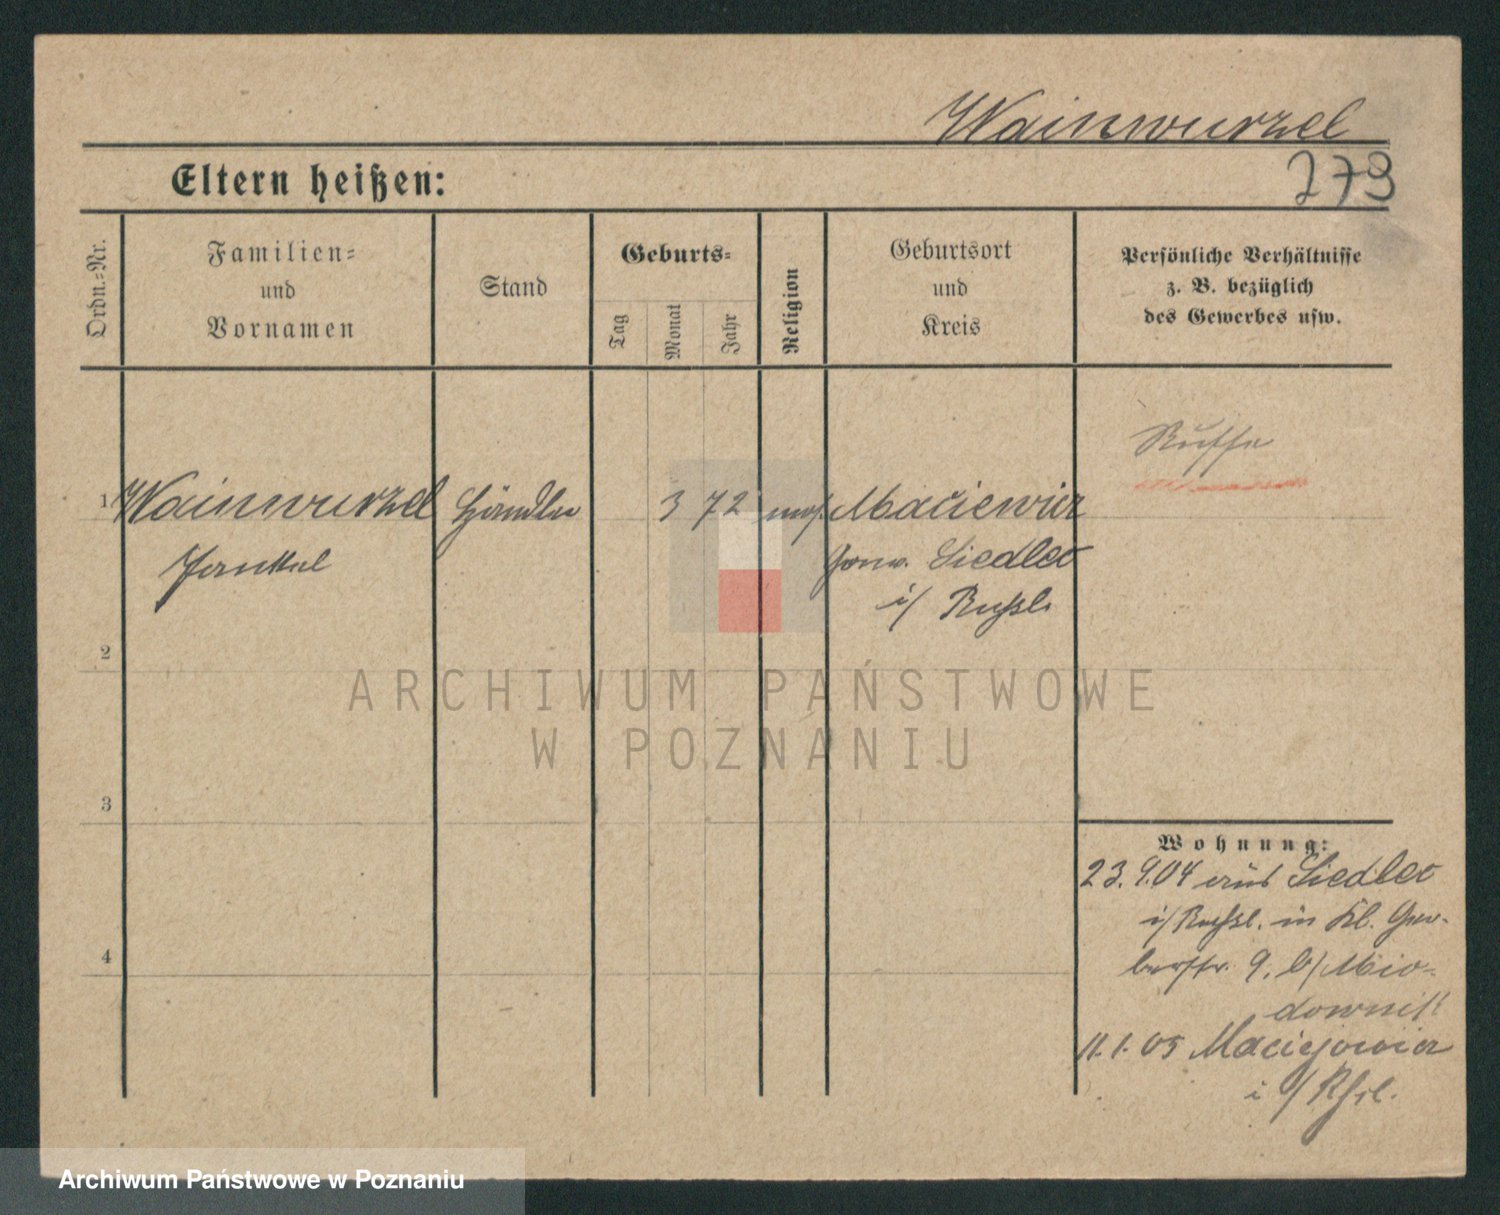 Wainwurzel
Eltern heißen:
273
Ordn.=Nr.
Familien=
und
Vornamen
Stand
Geburts=
Tag
Monat
Jahr
Religion
Geburtsort
und
Kreis
Persönliche Verhältnisse
z. B. bezüglich
des Gewerbes usw.
Russe
1 Wainwurzel Händler 3 72 mos. Maciewicz
Jankel Gouv. Siedlec
i/ Rußl.
2
ARCHIWUM PAŃSTWOWE
W POZNANIU
3
Wohnung:
23. 9. 04 aus Siedlec
i/ Rußl. in Kl. Ger-
berstr. 9. b/ Mio-
downik
4
11. 1. 05 Maciejowicz
i/
Archiwum Państwowe w Poznaniu